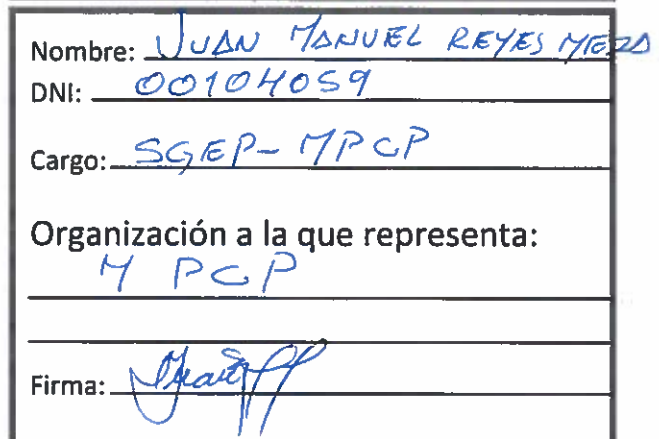 Nombre: JUAN MANUEL REYES MEZA
DNI: 00104059
Cargo: SGEP-MPCP
Organización a la que representa:
MPCP
Firma: